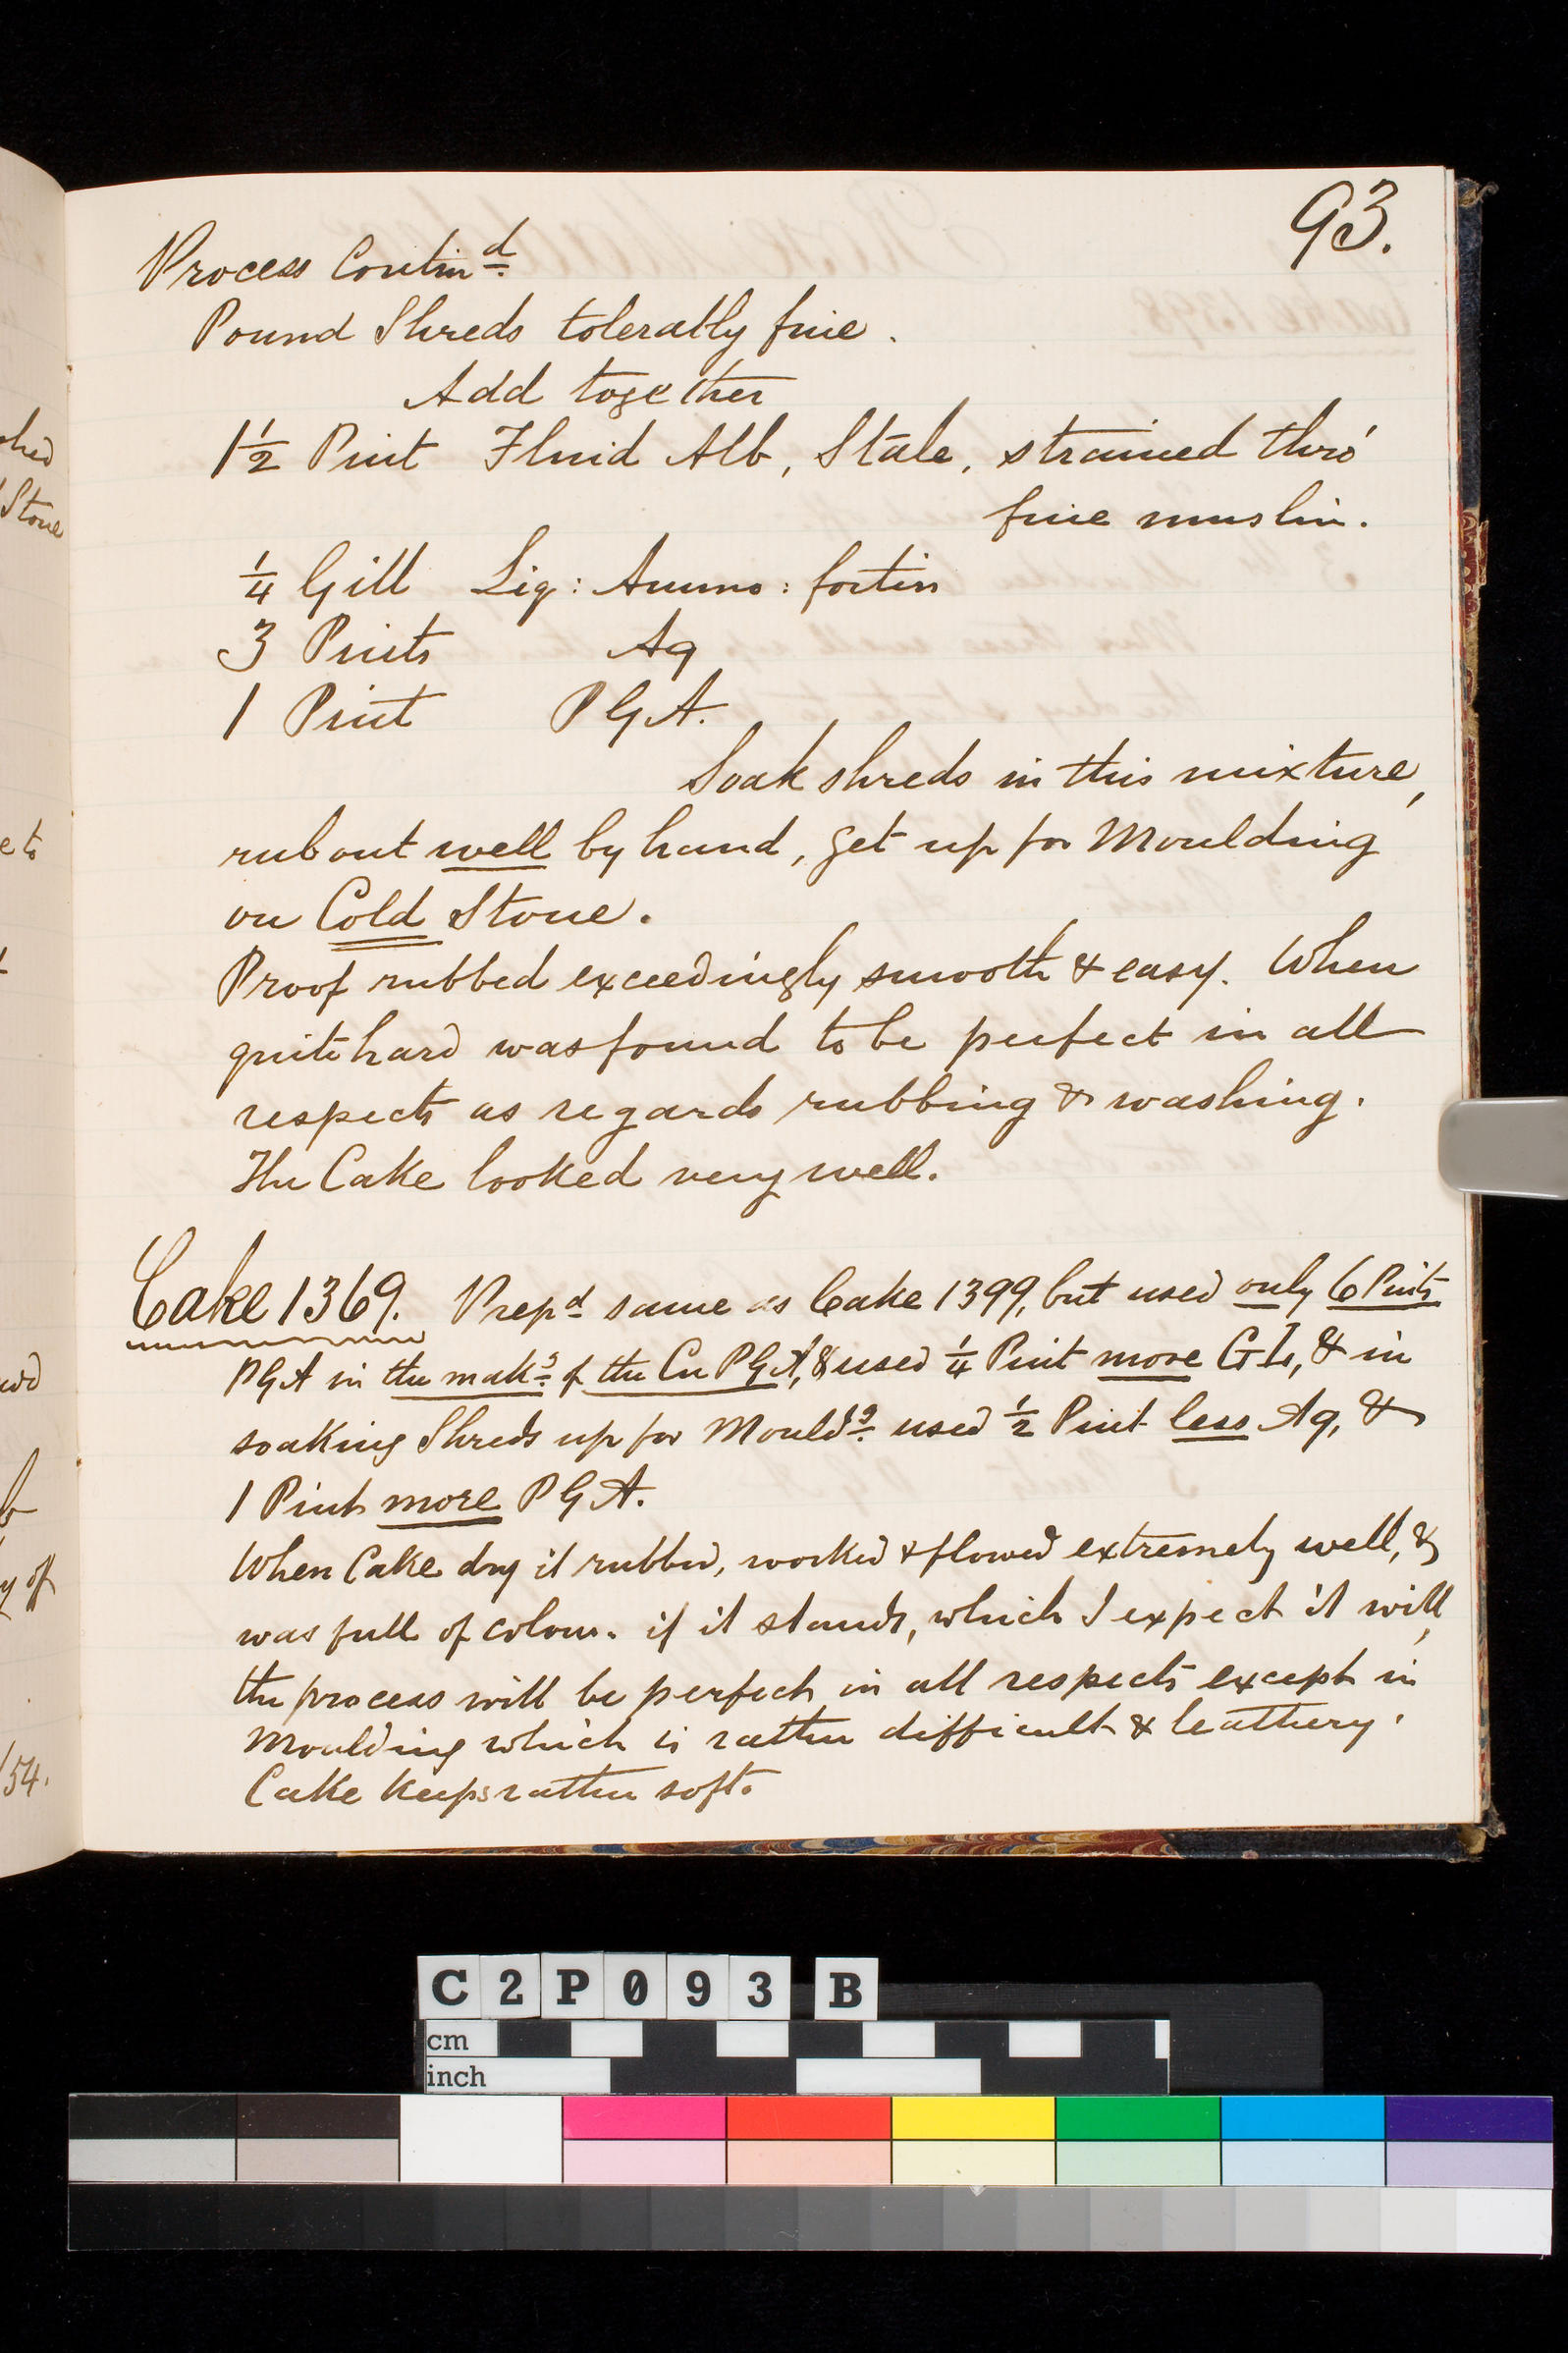 93.
Process Contin.d
Pound Shreds tolerably fine.
Add together
1½ Pint Fluid Alb, Stale, strained thro'
fine muslin.
¼ Gill Liq: Ammo: fortis
3 Pints Aq
1 Pint PGA.
Soak shreds in this mixture,
rub out well by hand, get up for Moulding
on Cold Stone.
Proof rubbed exceedingly smooth & easy. When
quite hard was found to be perfect in all
respects as regards rubbing & washing.
The Cake looked very well.
Cake 1369. Prepd same as Cake 1399, but used only 6 Pints
PGA in the makg of the Cu PGA, & used ¼ Pint more GL, & in
soaking Shreds up for Mouldg used ½ Pint less Aq, &
1 Pint more PGA.
When Cake dry it rubbed, worked & flowed extremely well, &
was full of colour. if it stands, which I expect it will,
the process will be perfect in all respects except in
Moulding which is rather difficult & leathery.
Cake keeps rather soft.
Stone
e to
y of
/54.
C2P093 B
cm
inch